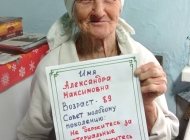 Имя
Александра
Максимовна
Возраст: 89
Совет молодому
поколению:
Не беритесь за